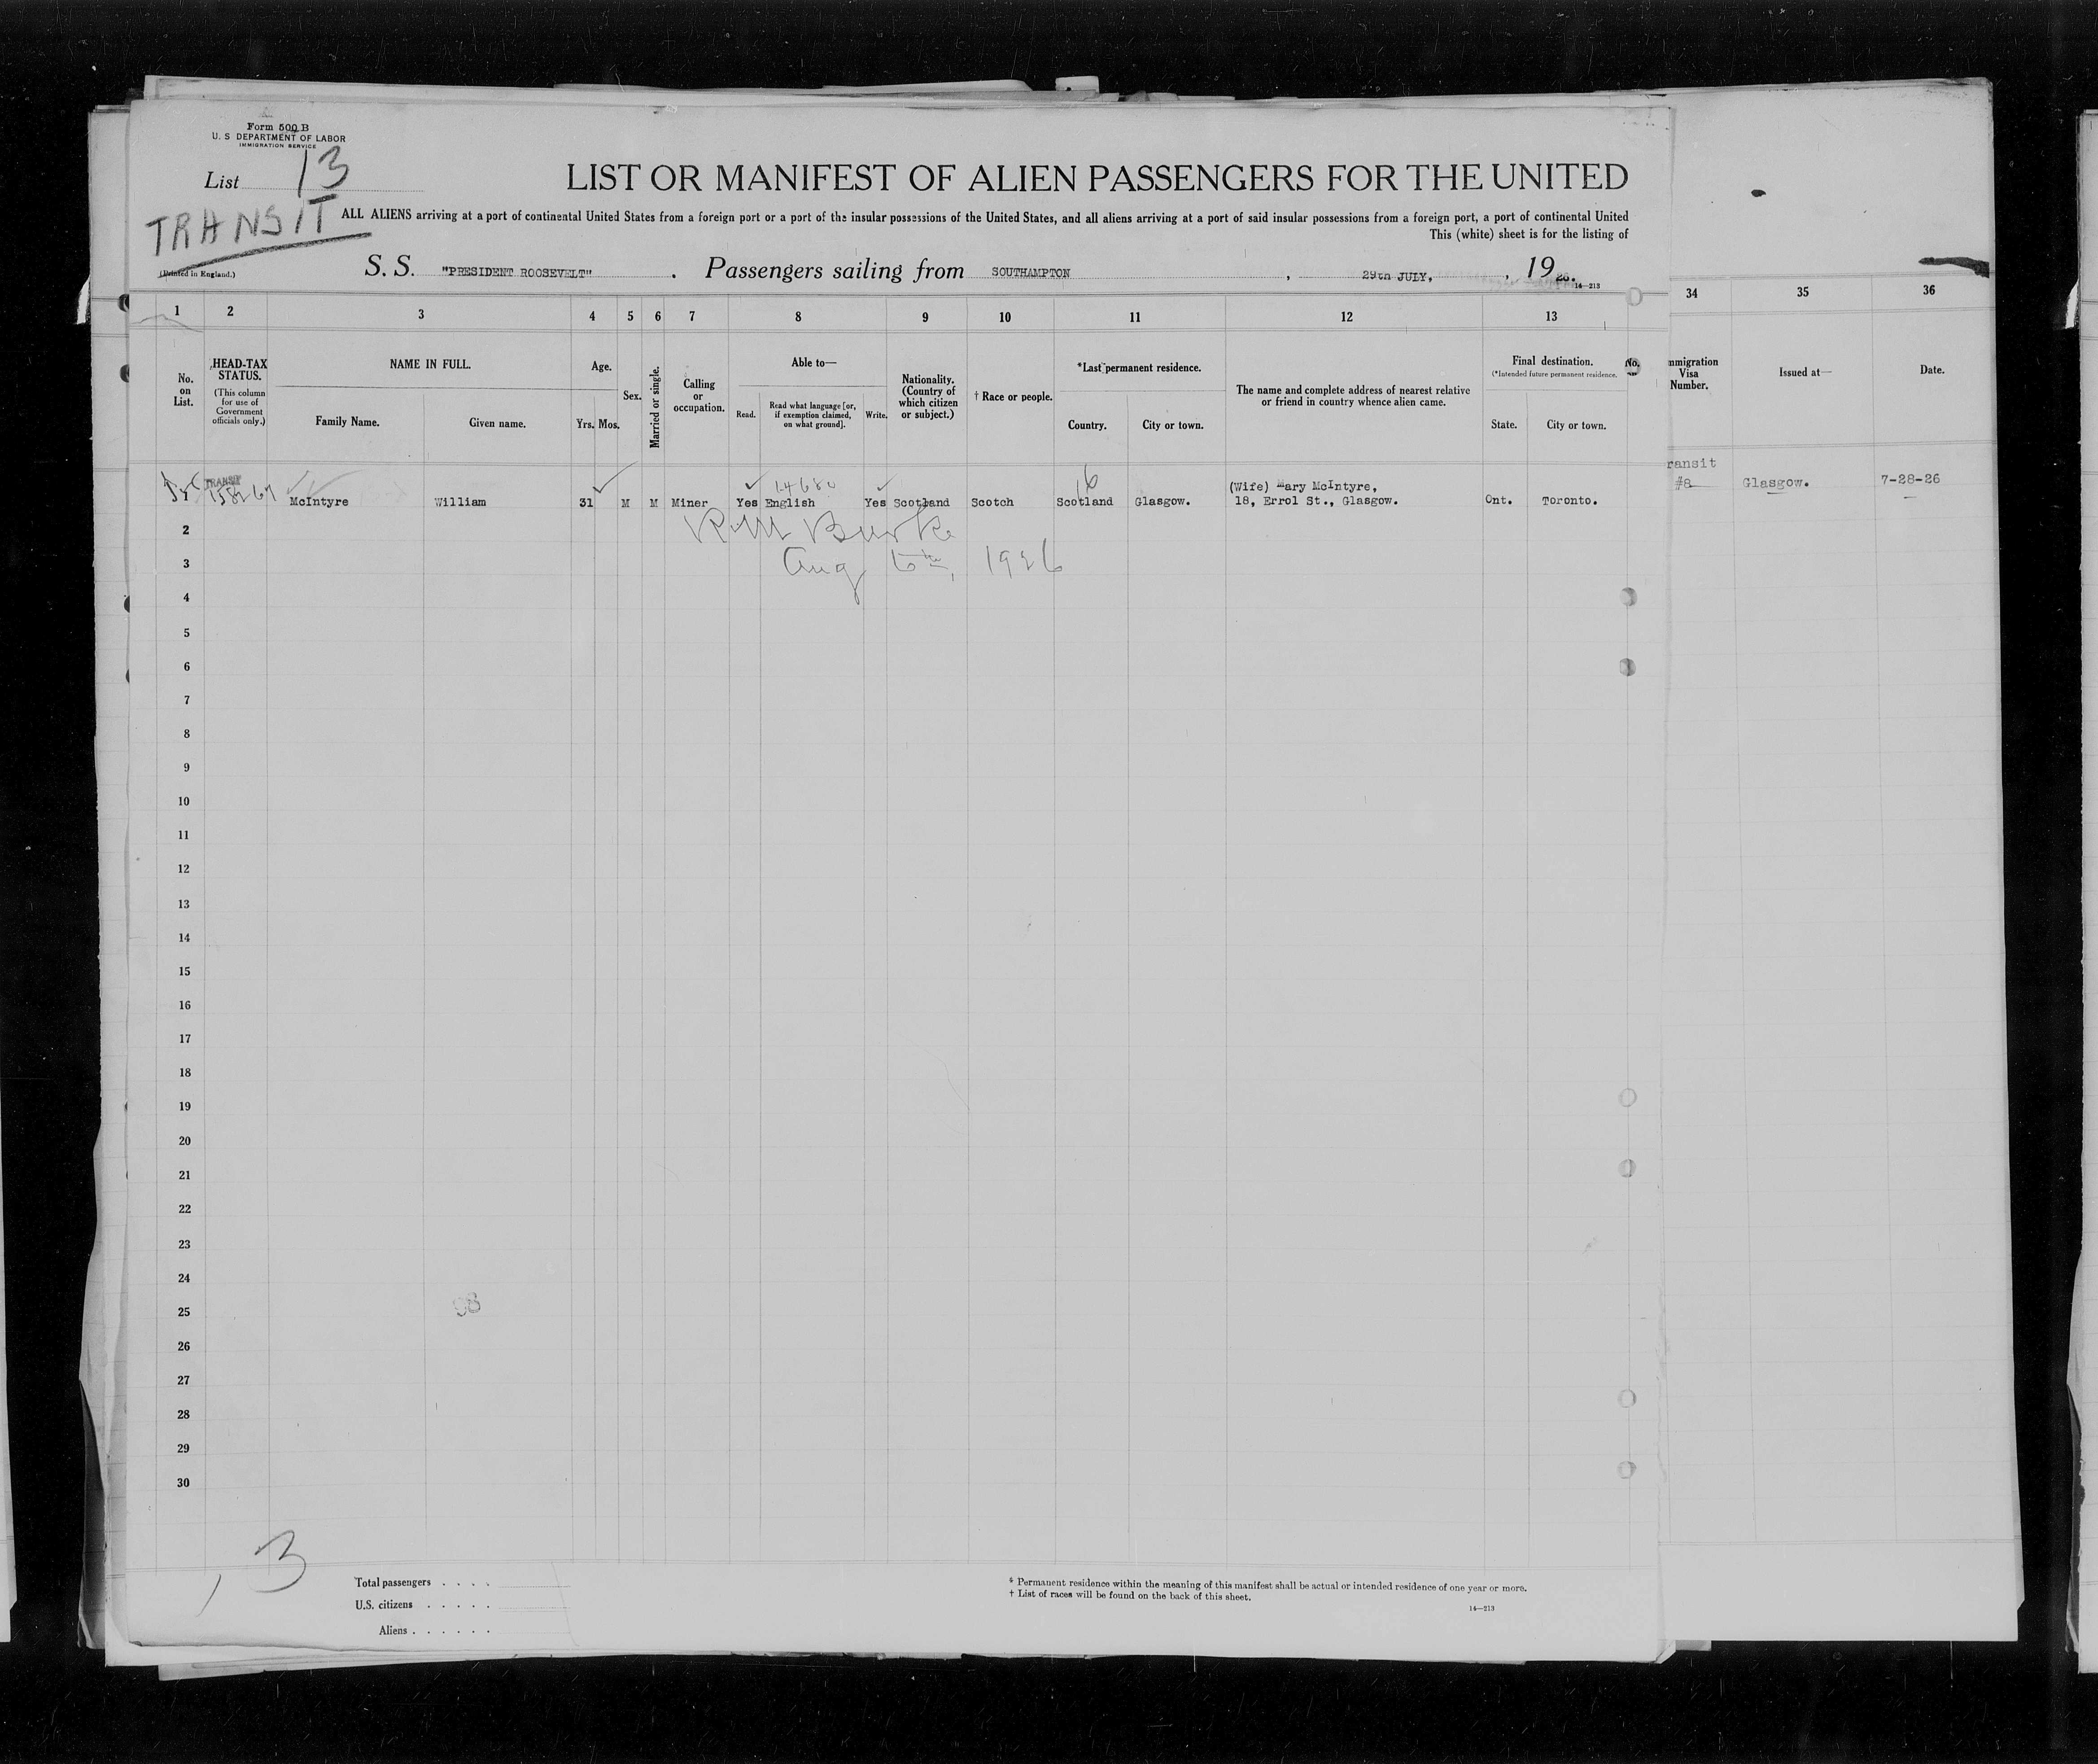 Form 500 B
U. S DEPARTMENT OF LABOR
IMMIGRATION SERVICE
List 13
TRANSIT
(Printed in England.)
LIST OR MANIFEST OF ALIEN PASSENGERS FOR THE UNITED
ALL ALIENS arriving at a port of continental United States from a foreign port or a port of the insular possessions of the United States, and all aliens arriving at a port of said insular possessions from a foreign port, a port of continental United
This (white) sheet is for the listing of
S. S. "PRESIDENT ROOSEVELT" . Passengers sailing from SOUTHAMPTON , 29th JULY, , 19 26.
14—213
1 2 3 4 5 6 7 8 9 10 11 12 13 34 35 36
No. on List.
HEAD-TAX STATUS.
(This column for use of Government officials only.)
NAME IN FULL.
Family Name. Given name.
Age.
Yrs. Mos.
Sex.
Married or single.
Calling or occupation.
Able to—
Read.
Read what language [or, if exemption claimed, on what ground].
Write.
Nationality. (Country of which citizen or subject.)
† Race or people.
*Last permanent residence.
Country. City or town.
The name and complete address of nearest relative or friend in country whence alien came.
Final destination.
(*Intended future permanent residence.
State. City or town.
No.
mmigration Visa Number.
Issued at—
Date.
TRANSIT
14680
16
(Wife) Mary McIntyre,
ransit
McIntyre William 31 M M Miner Yes English Yes Scotland Scotch Scotland Glasgow. 18, Errol St., Glasgow. Ont. Toronto. #8 Glasgow. 7-28-26
2 Burke
3 Aug 6th, 1926
4
5
6
7
8
9
10
11
12
13
14
15
16
17
18
19
20
21
22
23
24
25 98
26
27
28
29
30
13
Total passengers . . . .
U.S. citizens . . . . .
Aliens . . . . . .
* Permanent residence within the meaning of this manifest shall be actual or intended residence of one year or more.
† List of races will be found on the back of this sheet.
14—213